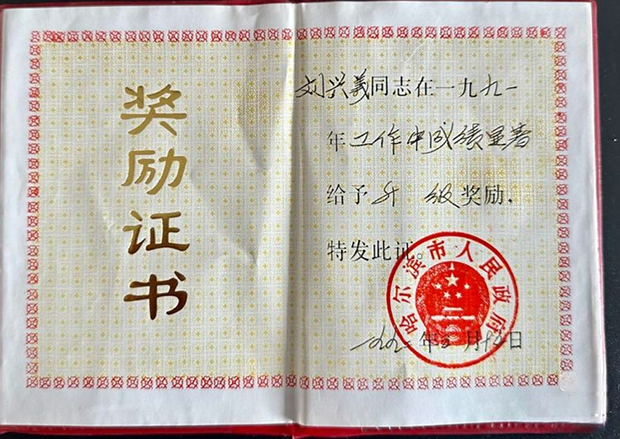 奖励证书
刘兴义同志在一九九一
年工作中成绩显著
给予升 级奖励，
特发此证。
哈尔滨市人民政府
一九九二年 月 日